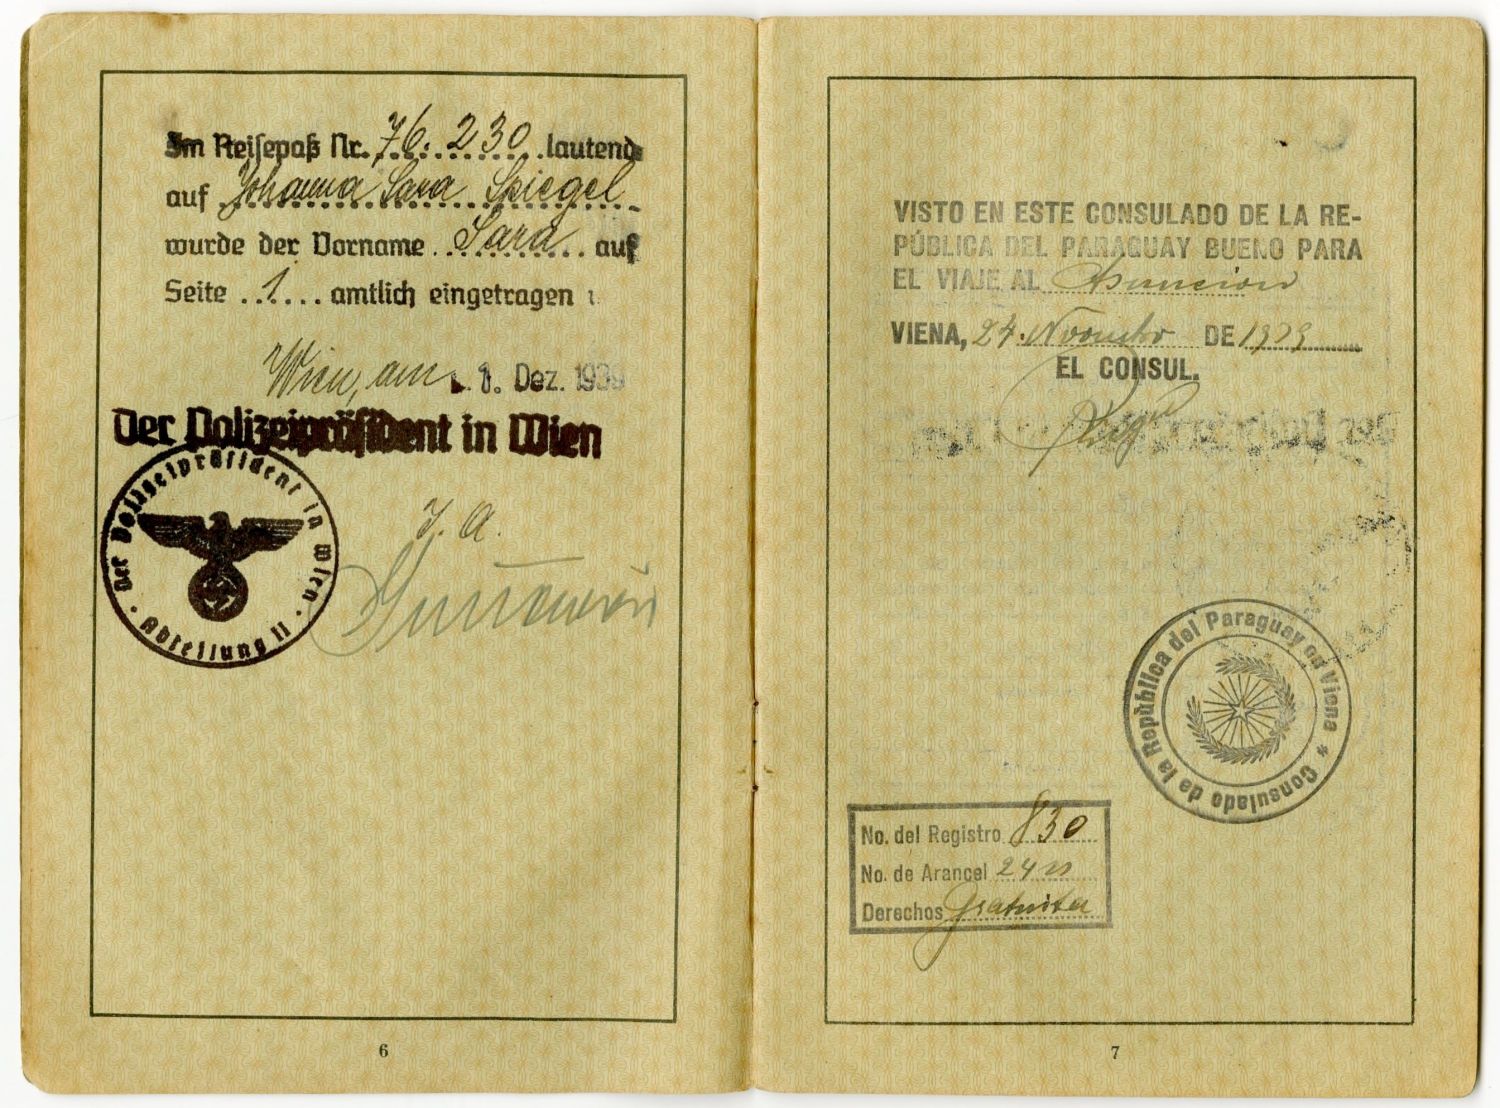 Im Reisepaß Nr. 76.230 lautend
auf Johanna Sara Spiegel
wurde der Vorname Sara auf
Seite 1 amtlich eingetragen
Wien, am 1. Dez. 1939
Der Polizeipräsident in Wien
Der Polizeipräsident in Wien
Abteilung II
I. A.
6
VISTO EN ESTE CONSULADO DE LA RE-
PÚBLICA DEL PARAGUAY BUENO PARA
EL VIAJE AL Asuncion
VIENA, 24. Novembro DE 1939
EL CONSUL.
Consulado de la República del Paraguay en Viena *
No. del Registro 830
No. de Arancel 24
Derechos Gratuita
7